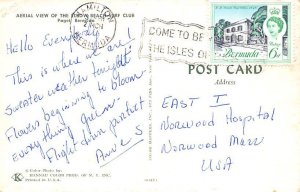 AERIAL VIEW OF THE ELBOW BEACH SURF CLUB
Paget, Bermuda
HAMILTON
BERMUDA
COME TO BE
THE ISLES OF
Bermuda
6D
Hello Everybody
This is where we are!
Sweater weather tonight
Flowers beginning to bloom
everything green.
Flight down perfect
Anne S
POST CARD
Address
EAST I
Norwood Hospital
Norwood Mass
USA
K
A Color Photo by
Printed in U.S.A.